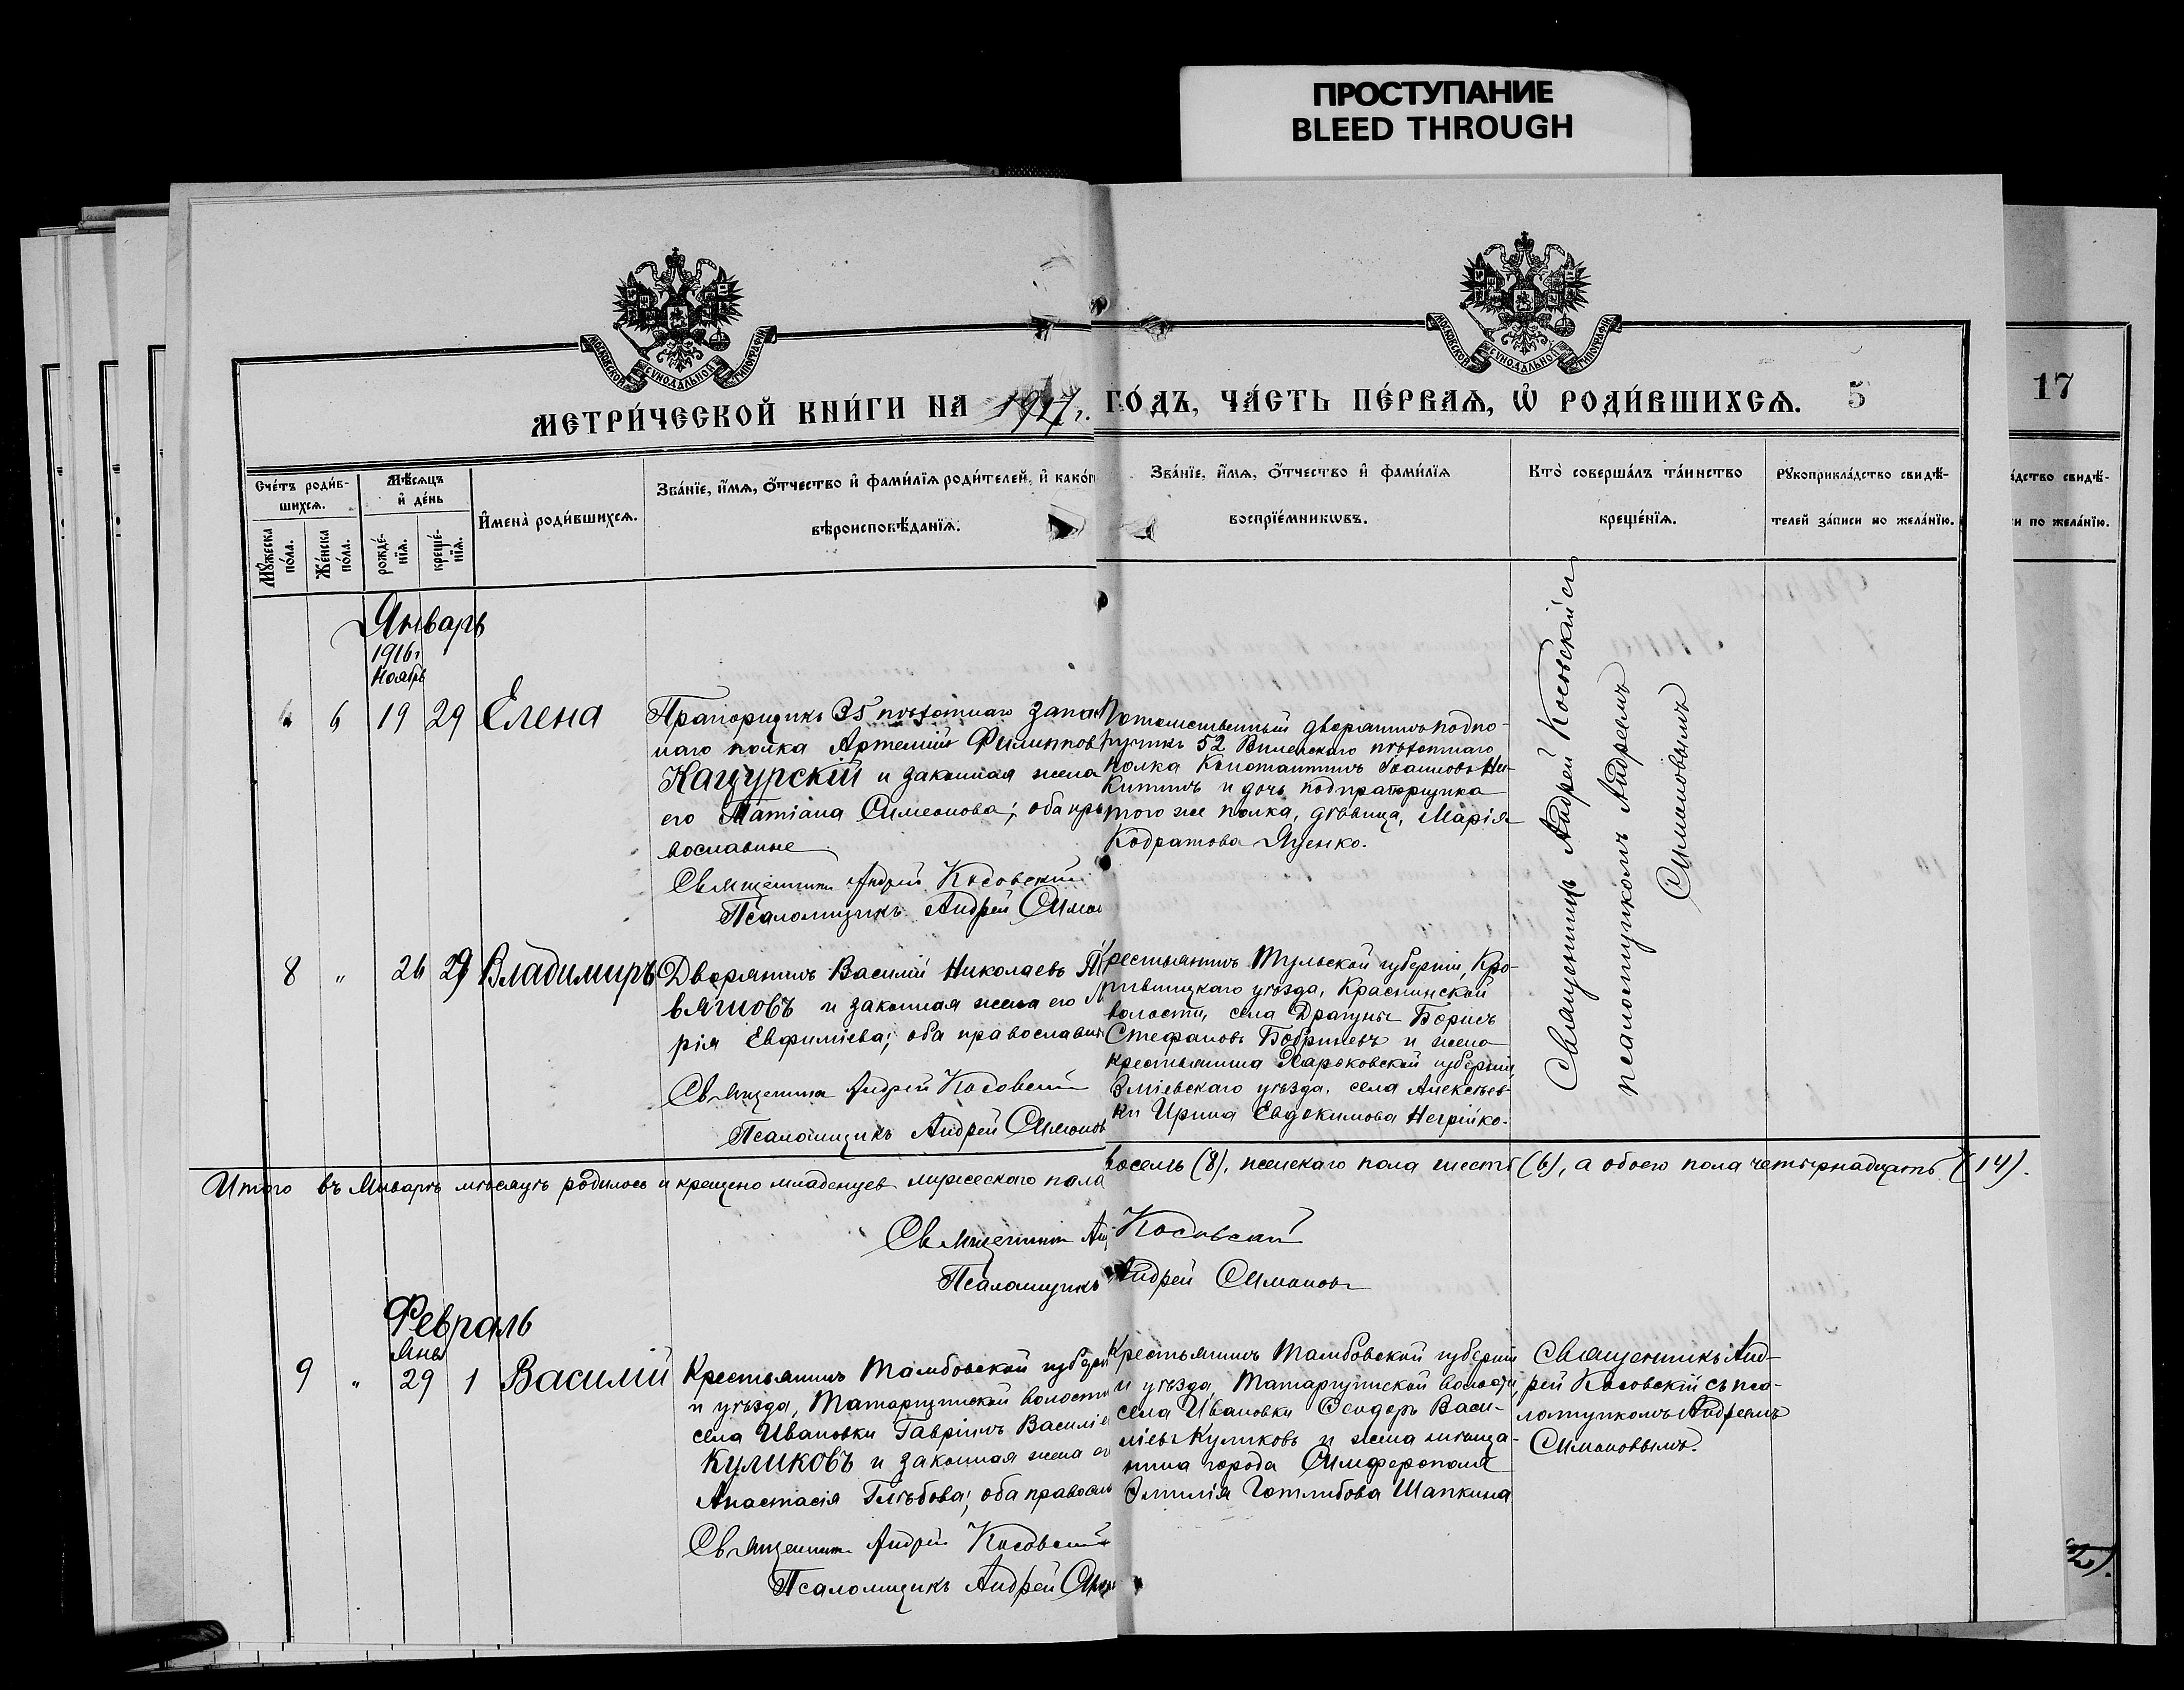 ПРОСТУПАНИЕ
BLEED THROUGH
МОСКОВСКОЙ СѴНОДАЛЬНОЙ ТИПОГРАФІИ
МОСКОВСКОЙ СѴНОДАЛЬНОЙ ТИПОГРАФІИ
МЕТРИ́ЧЕСКОЙ КНИ́ГИ НА 1917 г.
ГО́ДЪ, ЧА́СТЬ ПЕ́РВАѦ, Ѡ҆ РОДИ́ВШИХСѦ. 5
17
Сче́тъ роди́в-
шихсѧ.
Мꙋ́жеска
по́ла.
Же́нска
по́ла.
Мѣ́сѧцъ
и҆ де́нь
рожде́-
нїѧ.
креще́-
нїѧ.
И҆мена̀ роди́вшихсѧ.
Зва́нїе, и҆́мѧ, ѻ҆́тчество и҆ фами́лїѧ роди́телей, и҆ како́г
вѣроисповѣ́данїѧ.
Зва́нїе, и҆́мѧ, ѻ҆́тчество и҆ фами́лїѧ
воспрїе́мникѡвъ.
Кто̀ соверша́лъ та́инство
креще́нїѧ.
Рꙋкоприкла́дство свидѣ́-
телей за́писи по жела́нїю.
а́дство свидѣ́-
и по жела́нїю.
Январь
1916 г.
Ноябрь
6 19 29 Елена
Прапорщикъ 35 пѣхотнаго запас
наго полка Артемій Филиппов
Кацурскій и законная жена
его Татіана Симеонова; оба пра
вославные
Священникъ Андрей Косовскій
Псаломщикъ Андрей Симон
Потомственный дворянинъ подпо-
ручикъ 52 Виленскаго пѣхотнаго
полка Константинъ Іоанновъ Ни-
китинъ и дочь подпрапорщика
того же полка, дѣвица, Марія
Кодратова Яценко.
Священникъ Андрей Косовскій съ
псаломщикомъ Андреемъ
Симоновымъ
8 „ 26 29 Владимиръ
Дворянинъ Василій Николаевъ
вягновъ и законная жена его
рія Евфиміева; оба православн
Священникъ Андрей Косовскій
Псаломщикъ Андрей Симонов
Крестьянинъ Тульской губерніи, Кро-
пивницкаго уѣзда, Краснинской
волости, села Драгуны Борисъ
Стефановъ Бобриневъ и жена
крестьянина Харьковской губерніи
Зміевскаго уѣзда, села Алексѣев-
ки Ирина Евдокимова Негрійко.
Итого въ Январѣ мѣсяцѣ родилось и крещено младенцев мужескаго пола
восемь (8), женскаго пола шесть (6), а обоего пола четырнадцать (14).
Священникъ Анд Косовскій
Псаломщикъ Андрей Симонов
Февраль
Янв
9 „ 29 1 Василій
Крестьянинъ Тамбовской губерн
и уѣзда, Татарщинской волости
села Ивановки Гавріилъ Василіе
Куликовъ и законная жена ег
Анастасія Глѣбова; оба правосл
Священникъ Андрей Косовскій
Псаломщикъ Андрей Симон
Крестьянинъ Тамбовской губерніи
и уѣзда, Татарщинской волости,
села Ивановки Ѳеодоръ Васи-
ліевъ Куликовъ и жена мѣща-
нина города Симферополя
Эмилія Готлибова Шапкина
Священникъ Анд-
рей Косовскій съ пса-
ломщикомъ Андреемъ
Симоновымъ.